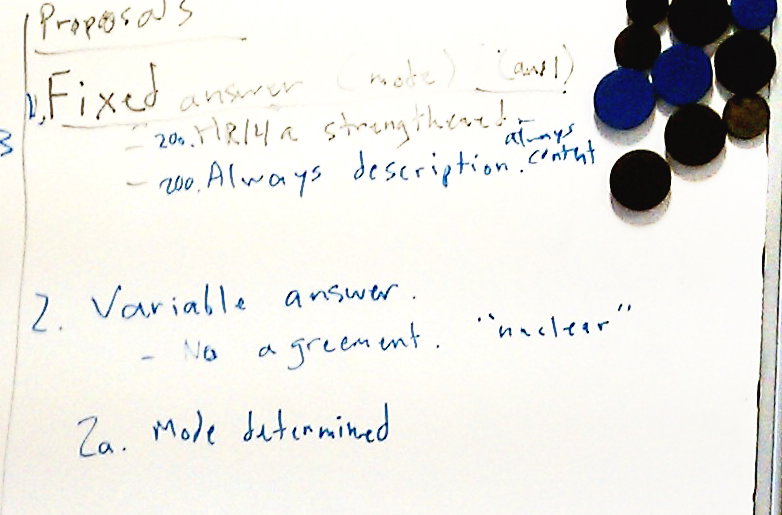 Proposals
1. Fixed answer (mode) (awl)
- 200. HR14a strengthened.
- 200. Always description. always content
2. Variable answer.
- No agreement. "nuclear"
2a. Mode determined